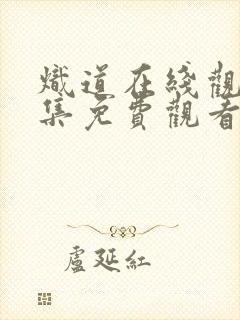 熾道在綫觀
集免費觀看
盧延紅